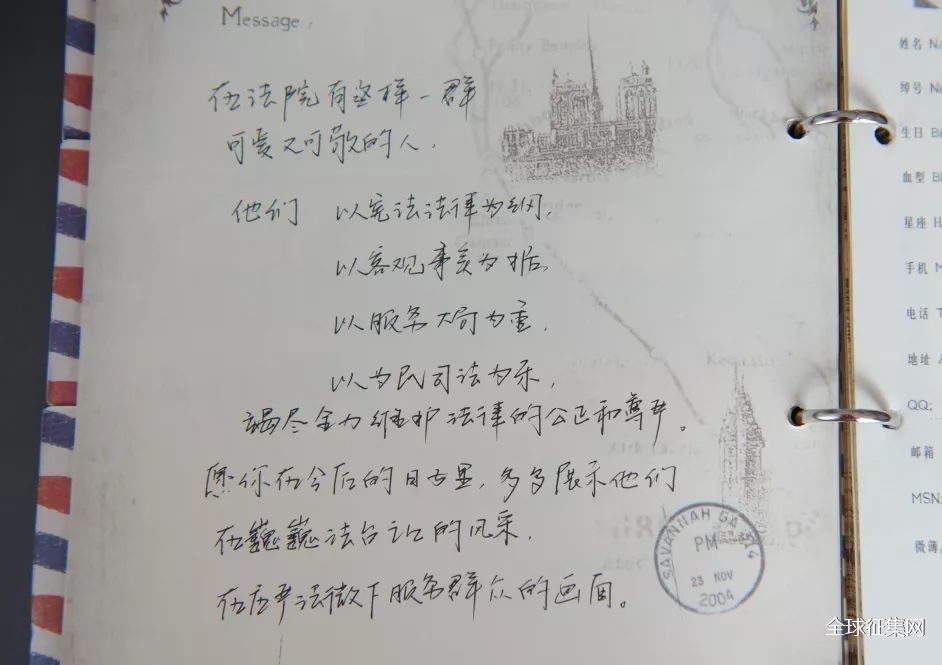 Message,
在法院有这样一群
可爱又可敬的人,
他们 以宪法法律为纲,
以客观事实为据,
以服务大局为重,
以为民司法为乐,
竭尽全力维护法律的公正和尊严。
愿你在今后的日子里,多多展示他们
在巍巍法台之上的风采,
在庄严法徽下服务群众的画面。
SAVANNAH GA
PM
23 NOV
2004
姓名 Na
绰号 Na
生日 B
血型 B
星座 H
手机 M
电话 T
地址 A
QQ:
邮箱
MSN:
微薄
全球征集网